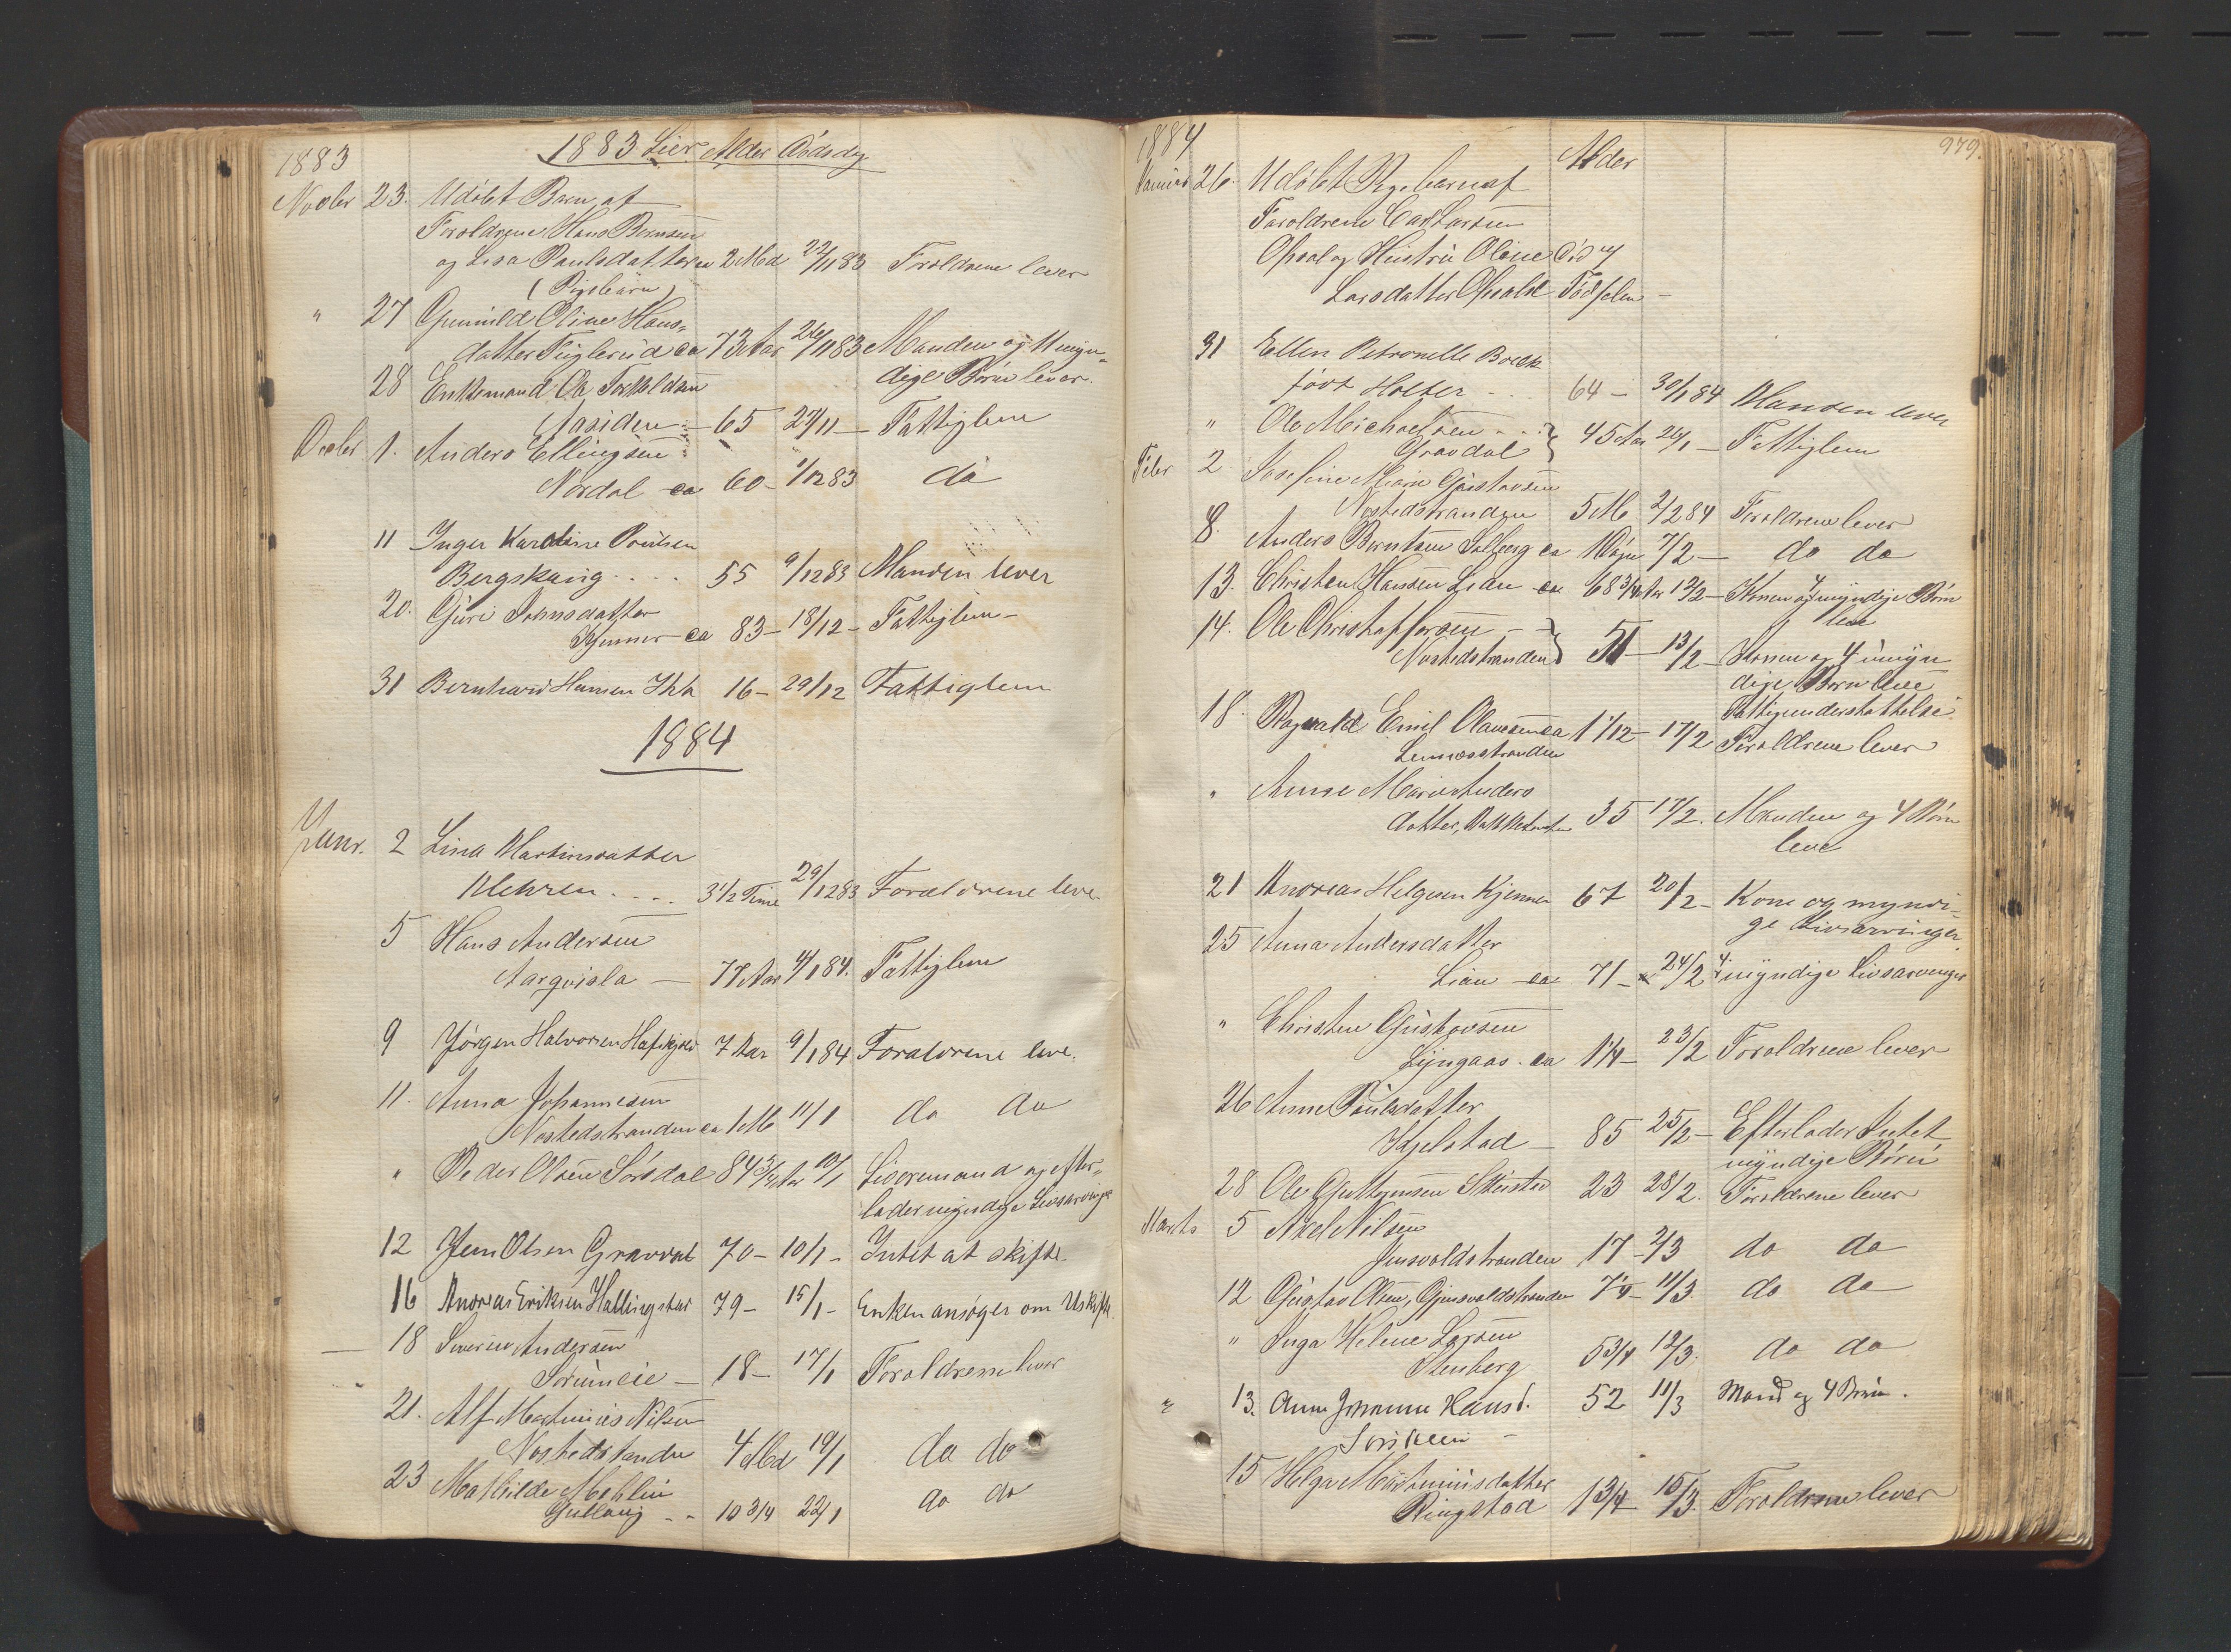 1883 1883 Lier Alder Dödsdag
Novbr 23. Udöbt Barn af
Foroldrene Hans Berntsen
og Lisa Paulsdatter ca 2 Md 22/11 83 Foroldrene lever
(Pigebarn)
" 27 Gunnild Oline Hans-
datter Fuglerud ca 73 Aar 26/11 83 Manden og umyn-
dige Börn lever.
28 Enkemand Ole Torkildsen
Aasiden — 65 27/11 — Fattiglem
Decbr 1. Anders Ellingsen
Nordal ca 60 - 1/12 83 do
11 Inger Karoline Poulsen
Bergskaug .... 55 9/12 83 Manden lever
20. Guri Johnsdatter
Kjenner ca 83 - 18/12 - Fattiglem -
31 Bernhard Hansen 16 - 29/12 Fattiglem
1884
Janr. 2 Lina Martinsdatter
Mehren .... 3 1/2 Time 29/12 83 Forældrene leve
5 Hans Andersen
Aarqvisla — 77 Aar 4/1 84. Fattiglem
9 Jörgen Halvorsen Hafskjold 7 Aar 9/1 84 Forældrene leve.
11. Anna Johannesen
Nöstedstranden ca 1 M 11/1 do do
" Peder Olsen Sörsdal 84 3/4 Aar 10/1 Livöremand og efter-
lader myndige Livsarvinger
12 Jens Olsen Gravdal 70 - 10/1 - Intet at skifte
16 Andreas Eriksen Hallingstad 79 - 15/1 - Enken ansöger om Uskifte
18 Severin Andersen
Sörumeie — 18 - 17/1 Foroldrene lever
21. Alf Martinius Nilsen
Nöstedstranden 4 Md 19/1 do do
23 Mathilde Mehlin
Gullaug - - 10 3/4 22/1 do do
1884 Alder 979.
Januar 26. Udöbt Pigebarn af
Foroldrene Carl Larsen
Opsal og Hustru Oline Död v/
Larsdatter Opsahl Födselen —
31 Ellen Petronelle Boeck
född Holter ... 64 - 30/1 84 Manden lever
" Ole Michaelsen ...
Gravdal 45 Aar 26/1 — Fattiglem
Febr 2 Josefine Marie Gustavsen
Nöstedstranden 5 M 2/2 84 Foroldrene lever
8. Anders Berntsen Solberg ca 1 Dögn 7/2 — do do
13. Christen Hansen Lian ca 68 3/4 Aar 12/2 — Konen og myndige Börn
leve
14. Ole Christoffersen - -
Nöstedstranden 51 — 13/2 - Konen og 4 umyn
dige Börn leve
Fattigunderstøttelse
18. Ragvald Emil Olavesen ca 1 1/12 - 17/2 Foroldrene lever
Lennesstranden
" Anne Marie Anders
datter, 35 17/2. Manden og 4 Börn
leve
21 Andreas Helgesen Kjenner 67 20/2 - Kone og myndi-
ge Livsarvinger.
25 Anna Andersdatter
Lian ca 71 - 24/2 4 myndige Livsarvinger
" Christen Gustavsen
Lyngaas ca 1 1/4 - 23/2 Foroldrene lever
26 Anne Paulsdatter
Kjelstad — 85 25/2 - Efterlader Intet
myndige Börn
28 Ole Guttormsen Skustad 23 28/2. Foroldrene lever
Marts 5 Axel Nilsen
Gjinsvoldstranden 17 - 2/3 do do
12 Gustav Olsen, Gjinsvoldstranden 7 1/2 - 11/3. do do
" Inga Helene Larsen
Stenberg 5 3/4 12/3. do do
" 13. Anne Johanne Hansd. 52 11/3 Mand og 4 Börn.
15 Helga Martiniusdatter
Ringstad 1 3/4 15/3. Foroldrene lever